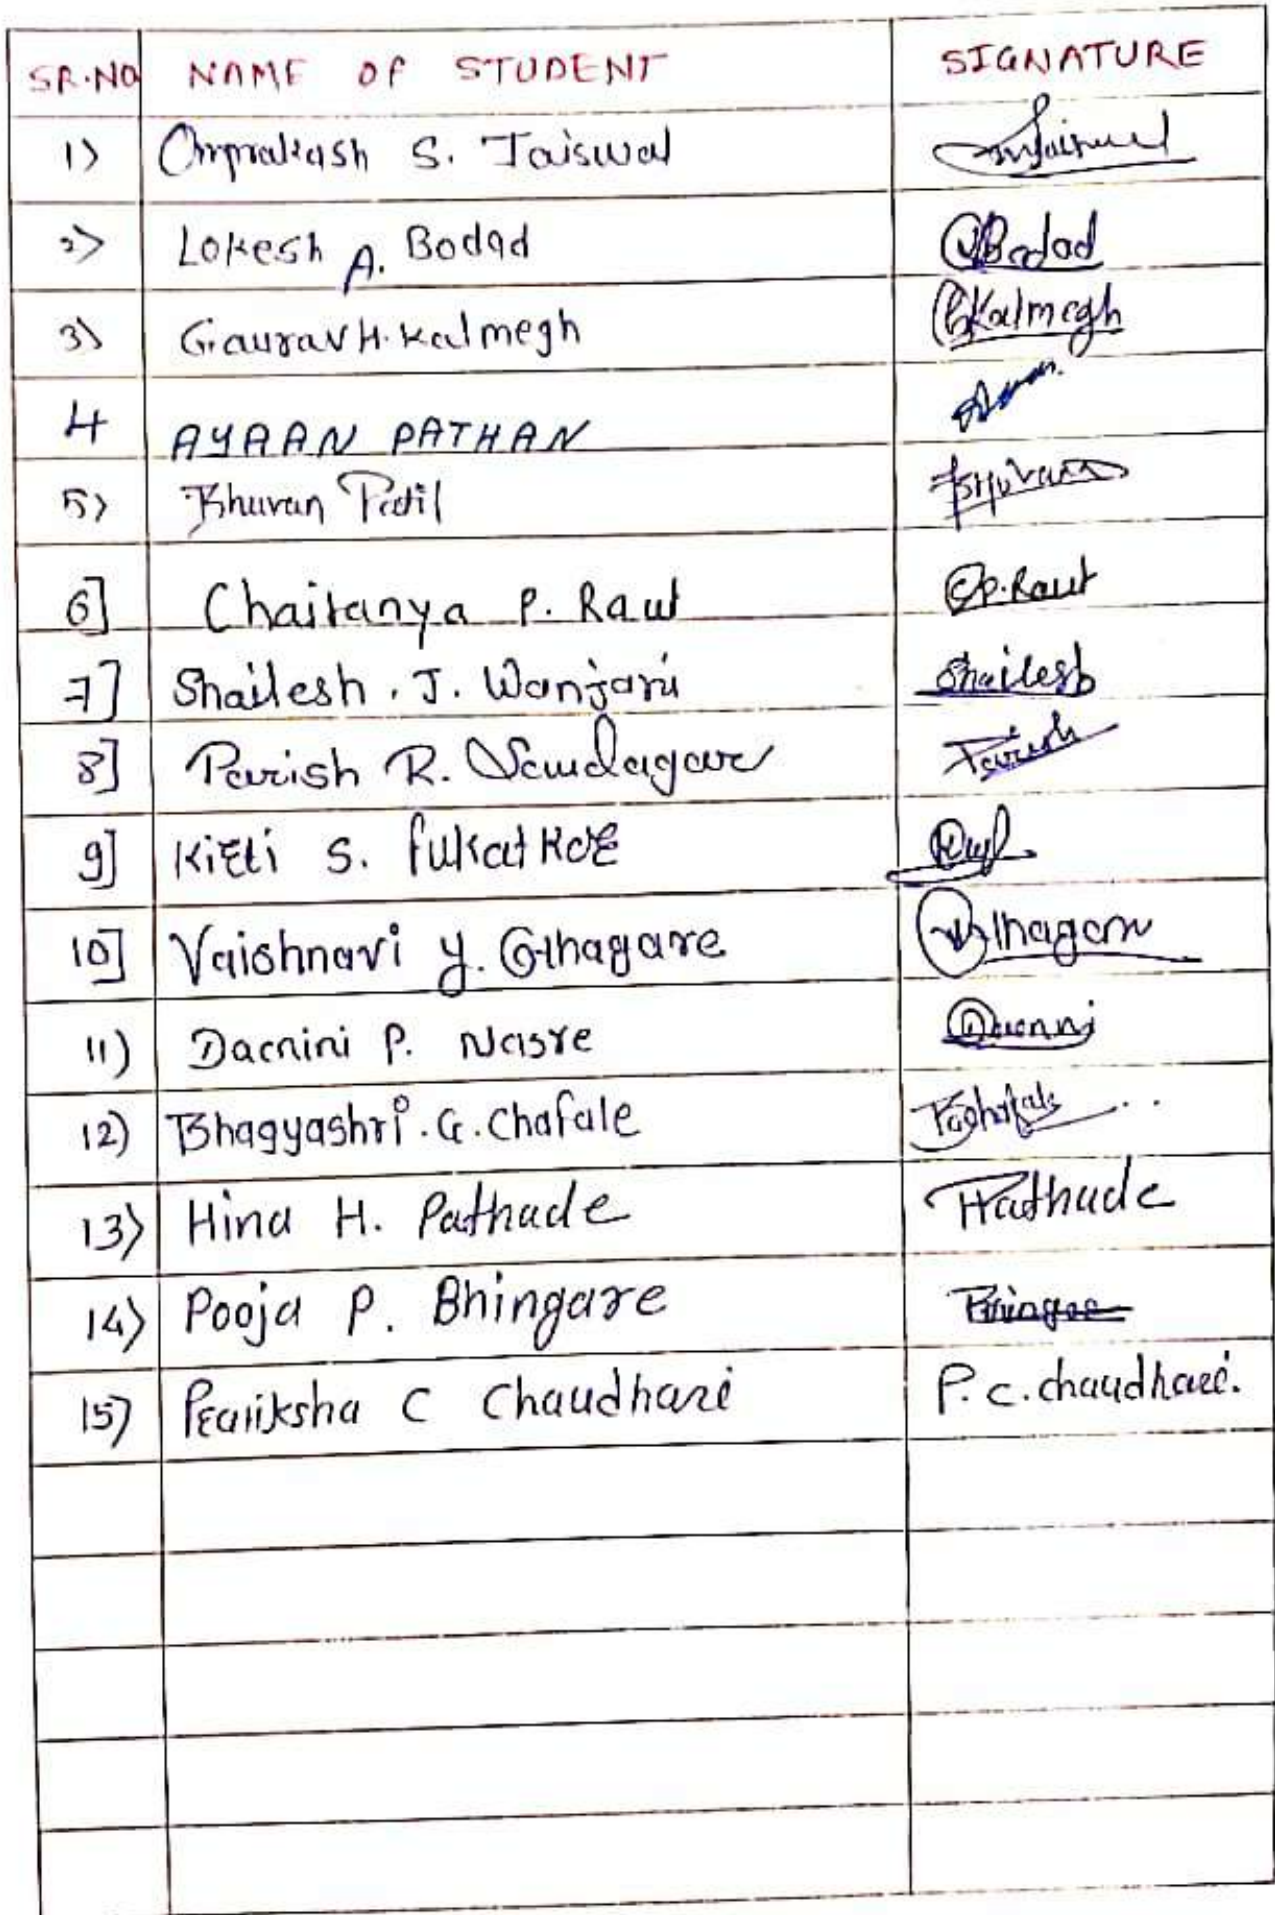 SR.NO NAME OF STUDENT SIGNATURE
1) Omprakash S. Jaiswal
2) Lokesh A. Bodad Bodad
3) Gaurav H. Kalmegh GKalmegh
4 AYAAN PATHAN
5) Bhuvan Patil Bhuvan
6] Chaitanya P. Raut C.P.Raut
7] Shailesh . J. Wanjari Shailesh
8] Parish R. Saudagar Parish
9] Kirti S. Pukatkar
10] Vaishnavi Y. Ghagare
11) Damini P. Nasre Damini
12) Bhagyashri . G. Chafale
13) Hina H. Pathade Pathade
14) Pooja P. Bhingare
15) Pratiksha C Chaudhari P. C. chaudhari.